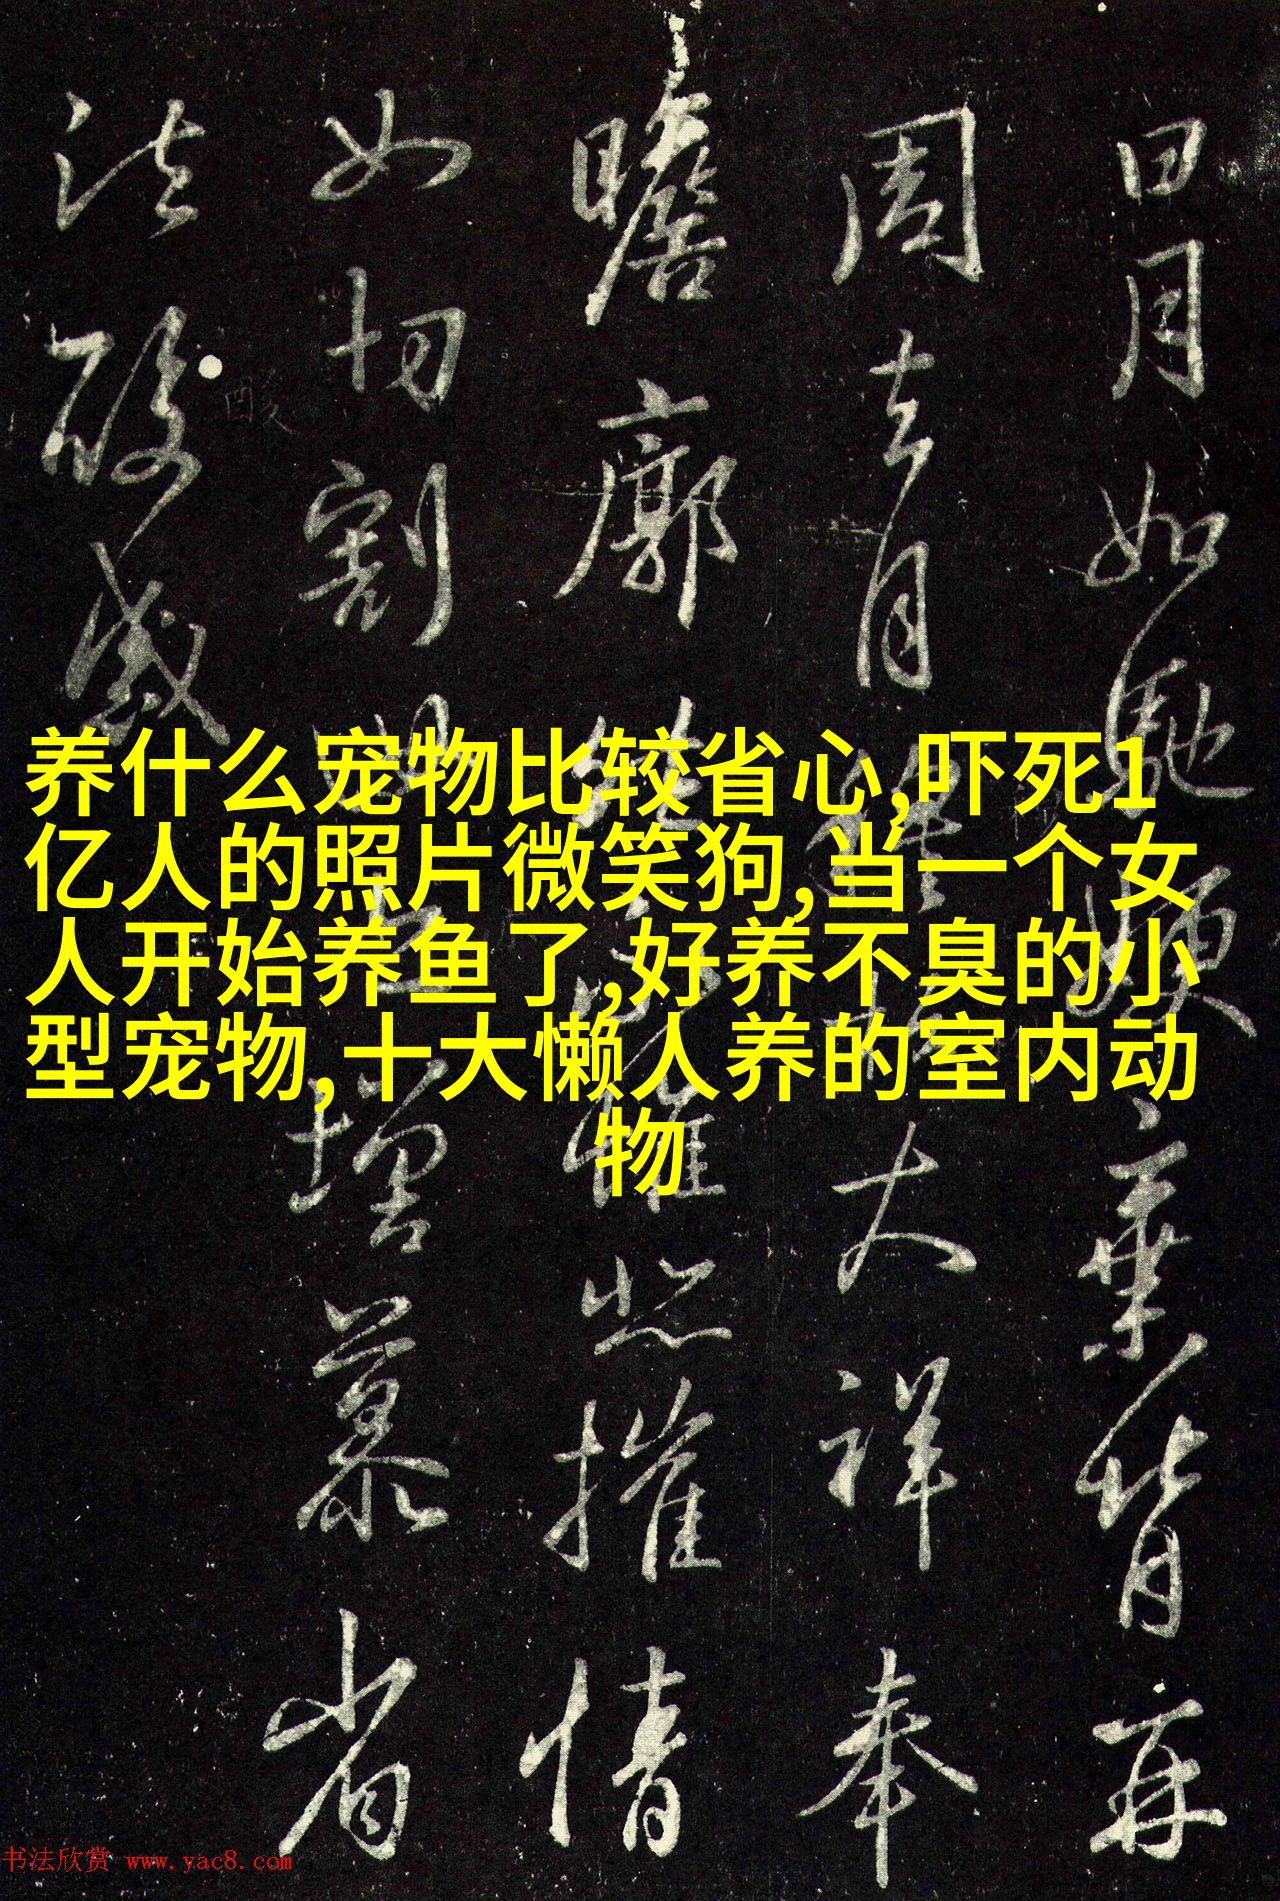 日月如馳嬭葉背弃
周去月
大祥奉
瞻廓
照摧情
如切割
增慕省
法酸感
酸
养什么宠物比较省心,吓死1
亿人的照片微笑狗,当一个女
人开始养鱼了,好养不臭的小
型宠物,十大懒人养的室内动
物
书法欣赏 www.yac8.com